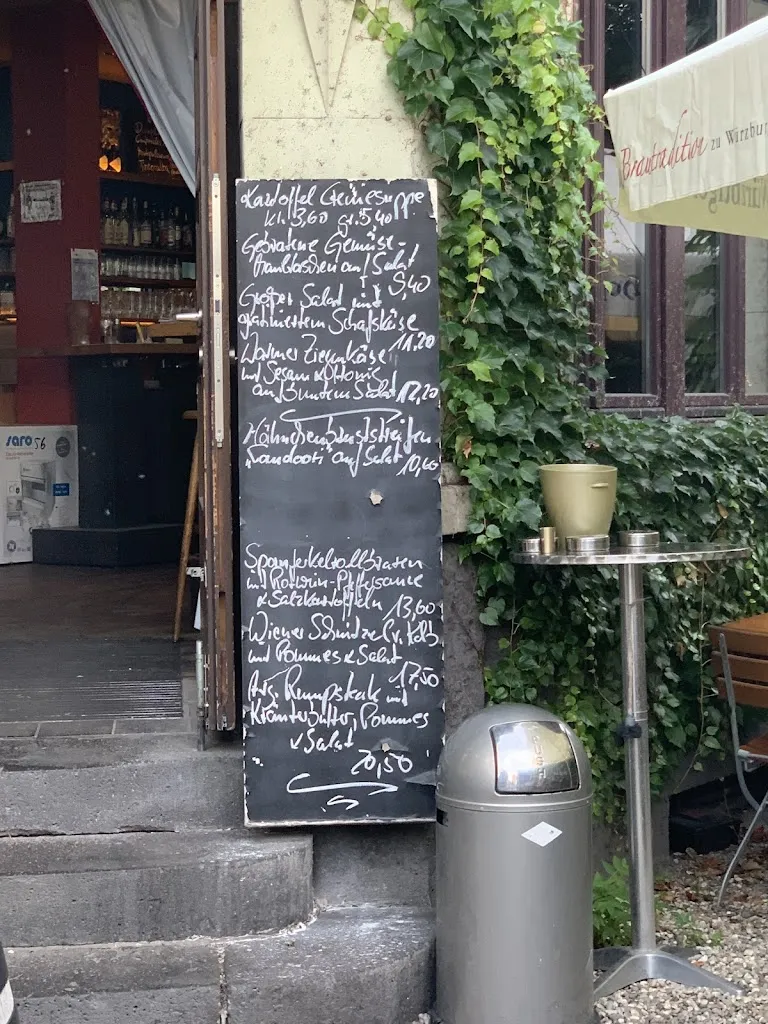 Kartoffel Gemüsesuppe
kl. 3,60 gr. 5,40
Gebratene Gemüse-
auf Salat
9,40
Großer Salat mit
gratiniertem Schafskäse
11,20
Warmer Ziegenkäse
mit Sesam & Honig
auf buntem Salat 12,20
Hähnchenbruststreifen
"Tandoori" auf Salat 10,60
Spanferkelrollbraten
mit Rotwein-Pfeffersauce
& Salzkartoffeln 13,60
Wiener Schnitzel v. Kalb
und Pommes & Salat
17,50
Arg. Rumpsteak mit
Kräuterbutter, Pommes
& Salat
20,50
saro 56
Brautradition zu Würzbur
PUSH